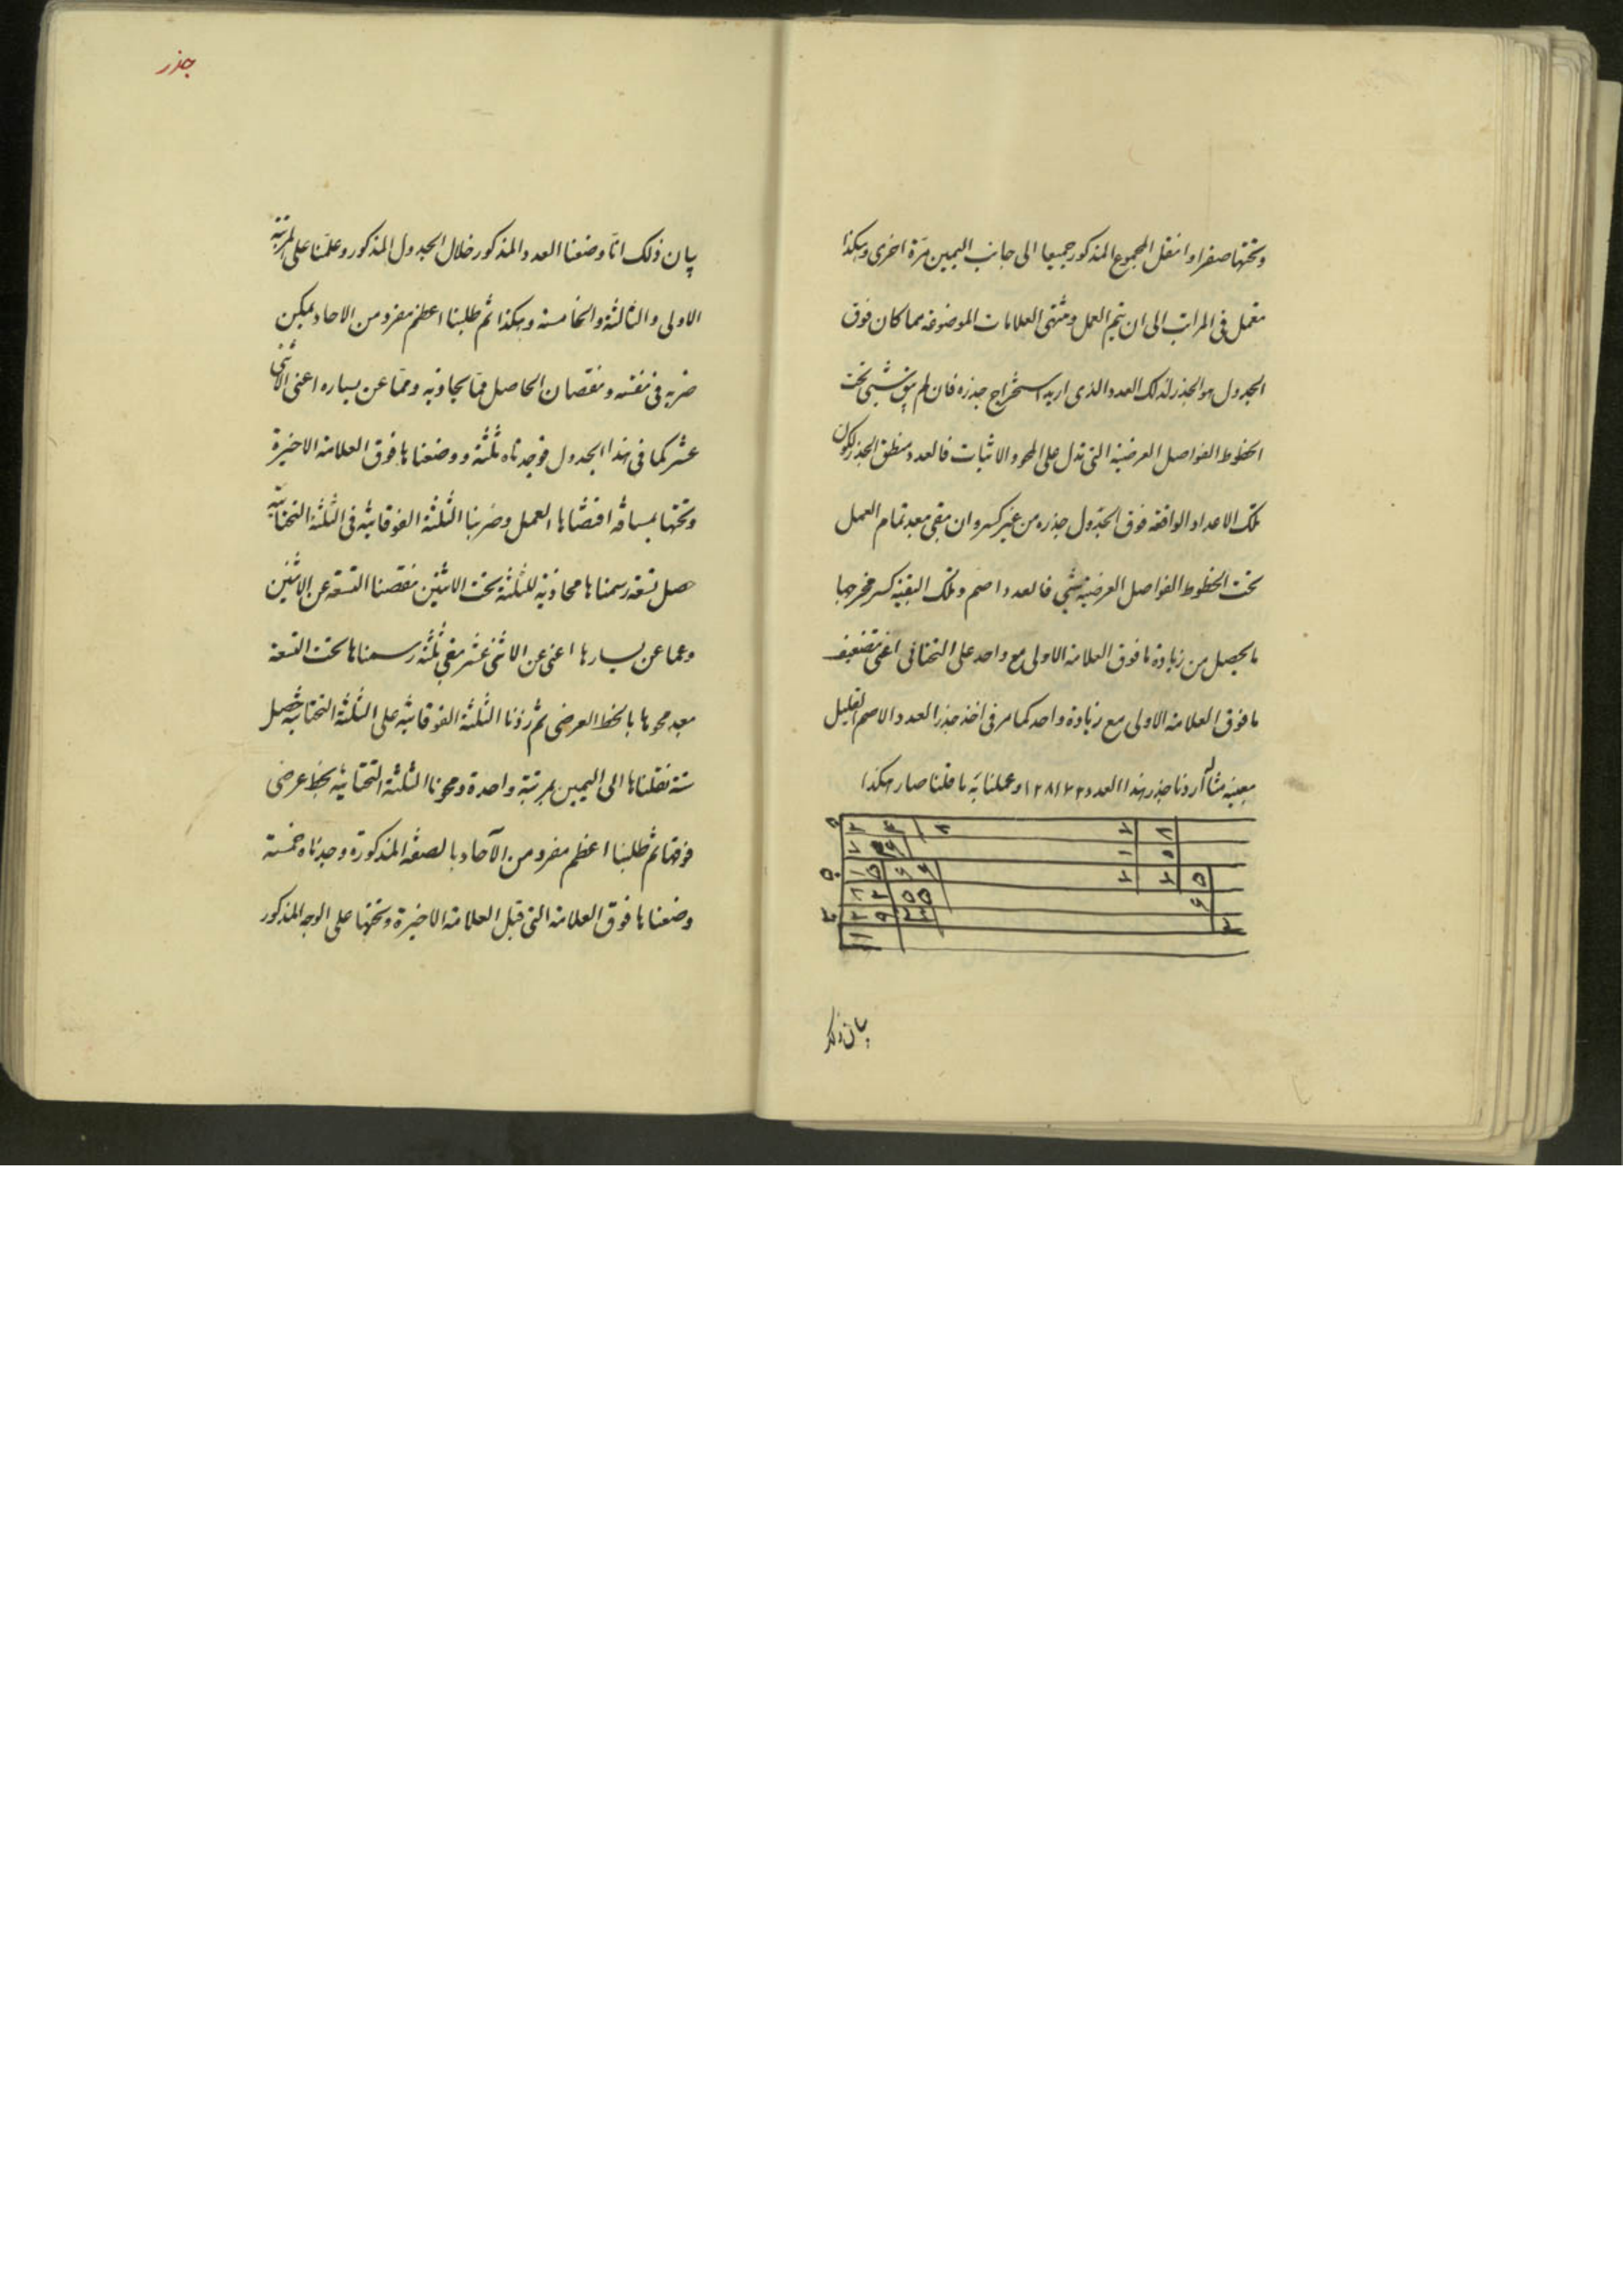 وتحتها صفرا وانقل المجموع المذكور جميعا الى جانب اليمين مرّة اخرى وهكذا
نعمل فى المراتب الى ان يتم العمل ومنتهى العلامات الموضوعة مما كان فوق
الجدول هو الجذر لذلك العدد الذى اريد استخراج جذره فان لم يبق شىء تحت
الخطوط الفواصل العرضية التى تدل على المحو والاثبات فالعدد منطق الجذر لكون
تلك الاعداد الواقعة فوق الجدول جذره من غير كسر وان بقى بعد تمام العمل
تحت الخطوط الفواصل العرضية شىء فالعدد اصم وتلك البقية كسر مخرجها
ما يحصل من زيادة ما فوق العلامة الاولى مع واحد على التحتانى اعنى تضعيف
ما فوق العلامة الاولى مع زيادة واحد كما مر فى اخذ جذر العدد الاصم القليل
بعينه مثاله اردنا جذر هذا العدد ١٢٨١٧٢ وعملنا به ما قلنا صار هكذا
بيان ذلك
جذر
بيان ذلك انّا وضعنا العدد المذكور خلال الجدول المذكور وعلّمنا على المرتبة
الاولى والثالثة والخامسة وهكذا ثم طلبنا اعظم مفرد من الاحاد يمكن
ضربه فى نفسه ونقصان الحاصل ممّا يحاذيه وممّا عن يساره اعنى الاثنى
عشر كما فى هذا الجدول فوجدناه ثلثة ووضعناها فوق العلامة الاخيرة
وتحتها بمسافة اقتضاها العمل وضربنا الثلثة الفوقانية فى الثلثة التحتانية
حصل تسعة رسمناها محاذية للثلثة تحت الاثنين نقصنا التسعة عن الاثنين
وعما عن يسارها اعنى عن الاثنى عشر بقى ثلثة رسمناها تحت التسعة
بعد محوها بالخط العرضى ثم زدنا الثلثة الفوقانية على الثلثة التحتانية حصل
ستة نقلناها الى اليمين بمرتبة واحدة ومحونا الثلثة التحتانية بخط عرضى
فوقها ثم طلبنا اعظم مفرد من الآحاد بالصفة المذكورة وجدناه خمسة
وضعناها فوق العلامة التى قبل العلامة الاخيرة وتحتها على الوجه المذكور